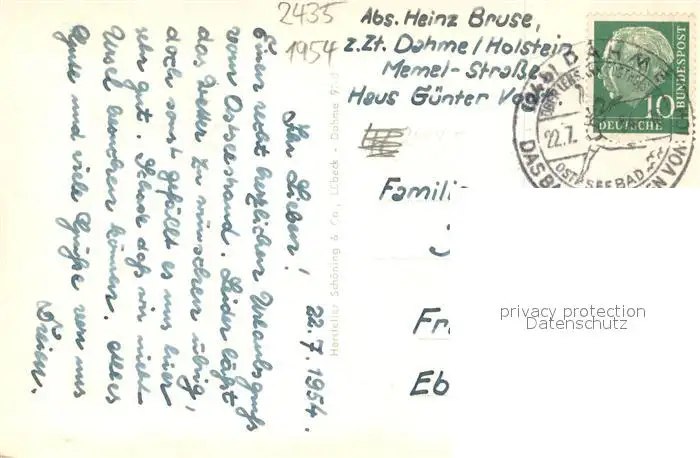 2435
1954
Abs. Heinz Bruse,
z.Zt. Dahme/Holstein
Memel-Straße
Haus Günter
DEUTSCHE
BUNDESPOST
10
22.7.
OSTSEEBAD
DAS
VON
Famili
Fr
Eb
privacy protection
Datenschutz
Hersteller Schöning & Co., Lübeck - Dahme
22.7.1954.
Ihr Lieben!
Einen recht herzlichen Urlaubsgruß
vom Ostseestrand. Leider läßt
das Wetter zu wünschen übrig,
doch sonst gefällt es uns hier
sehr gut. Schade daß wir nicht
besuchen können. Alles
Gute und viele Grüße von uns
Dreien.